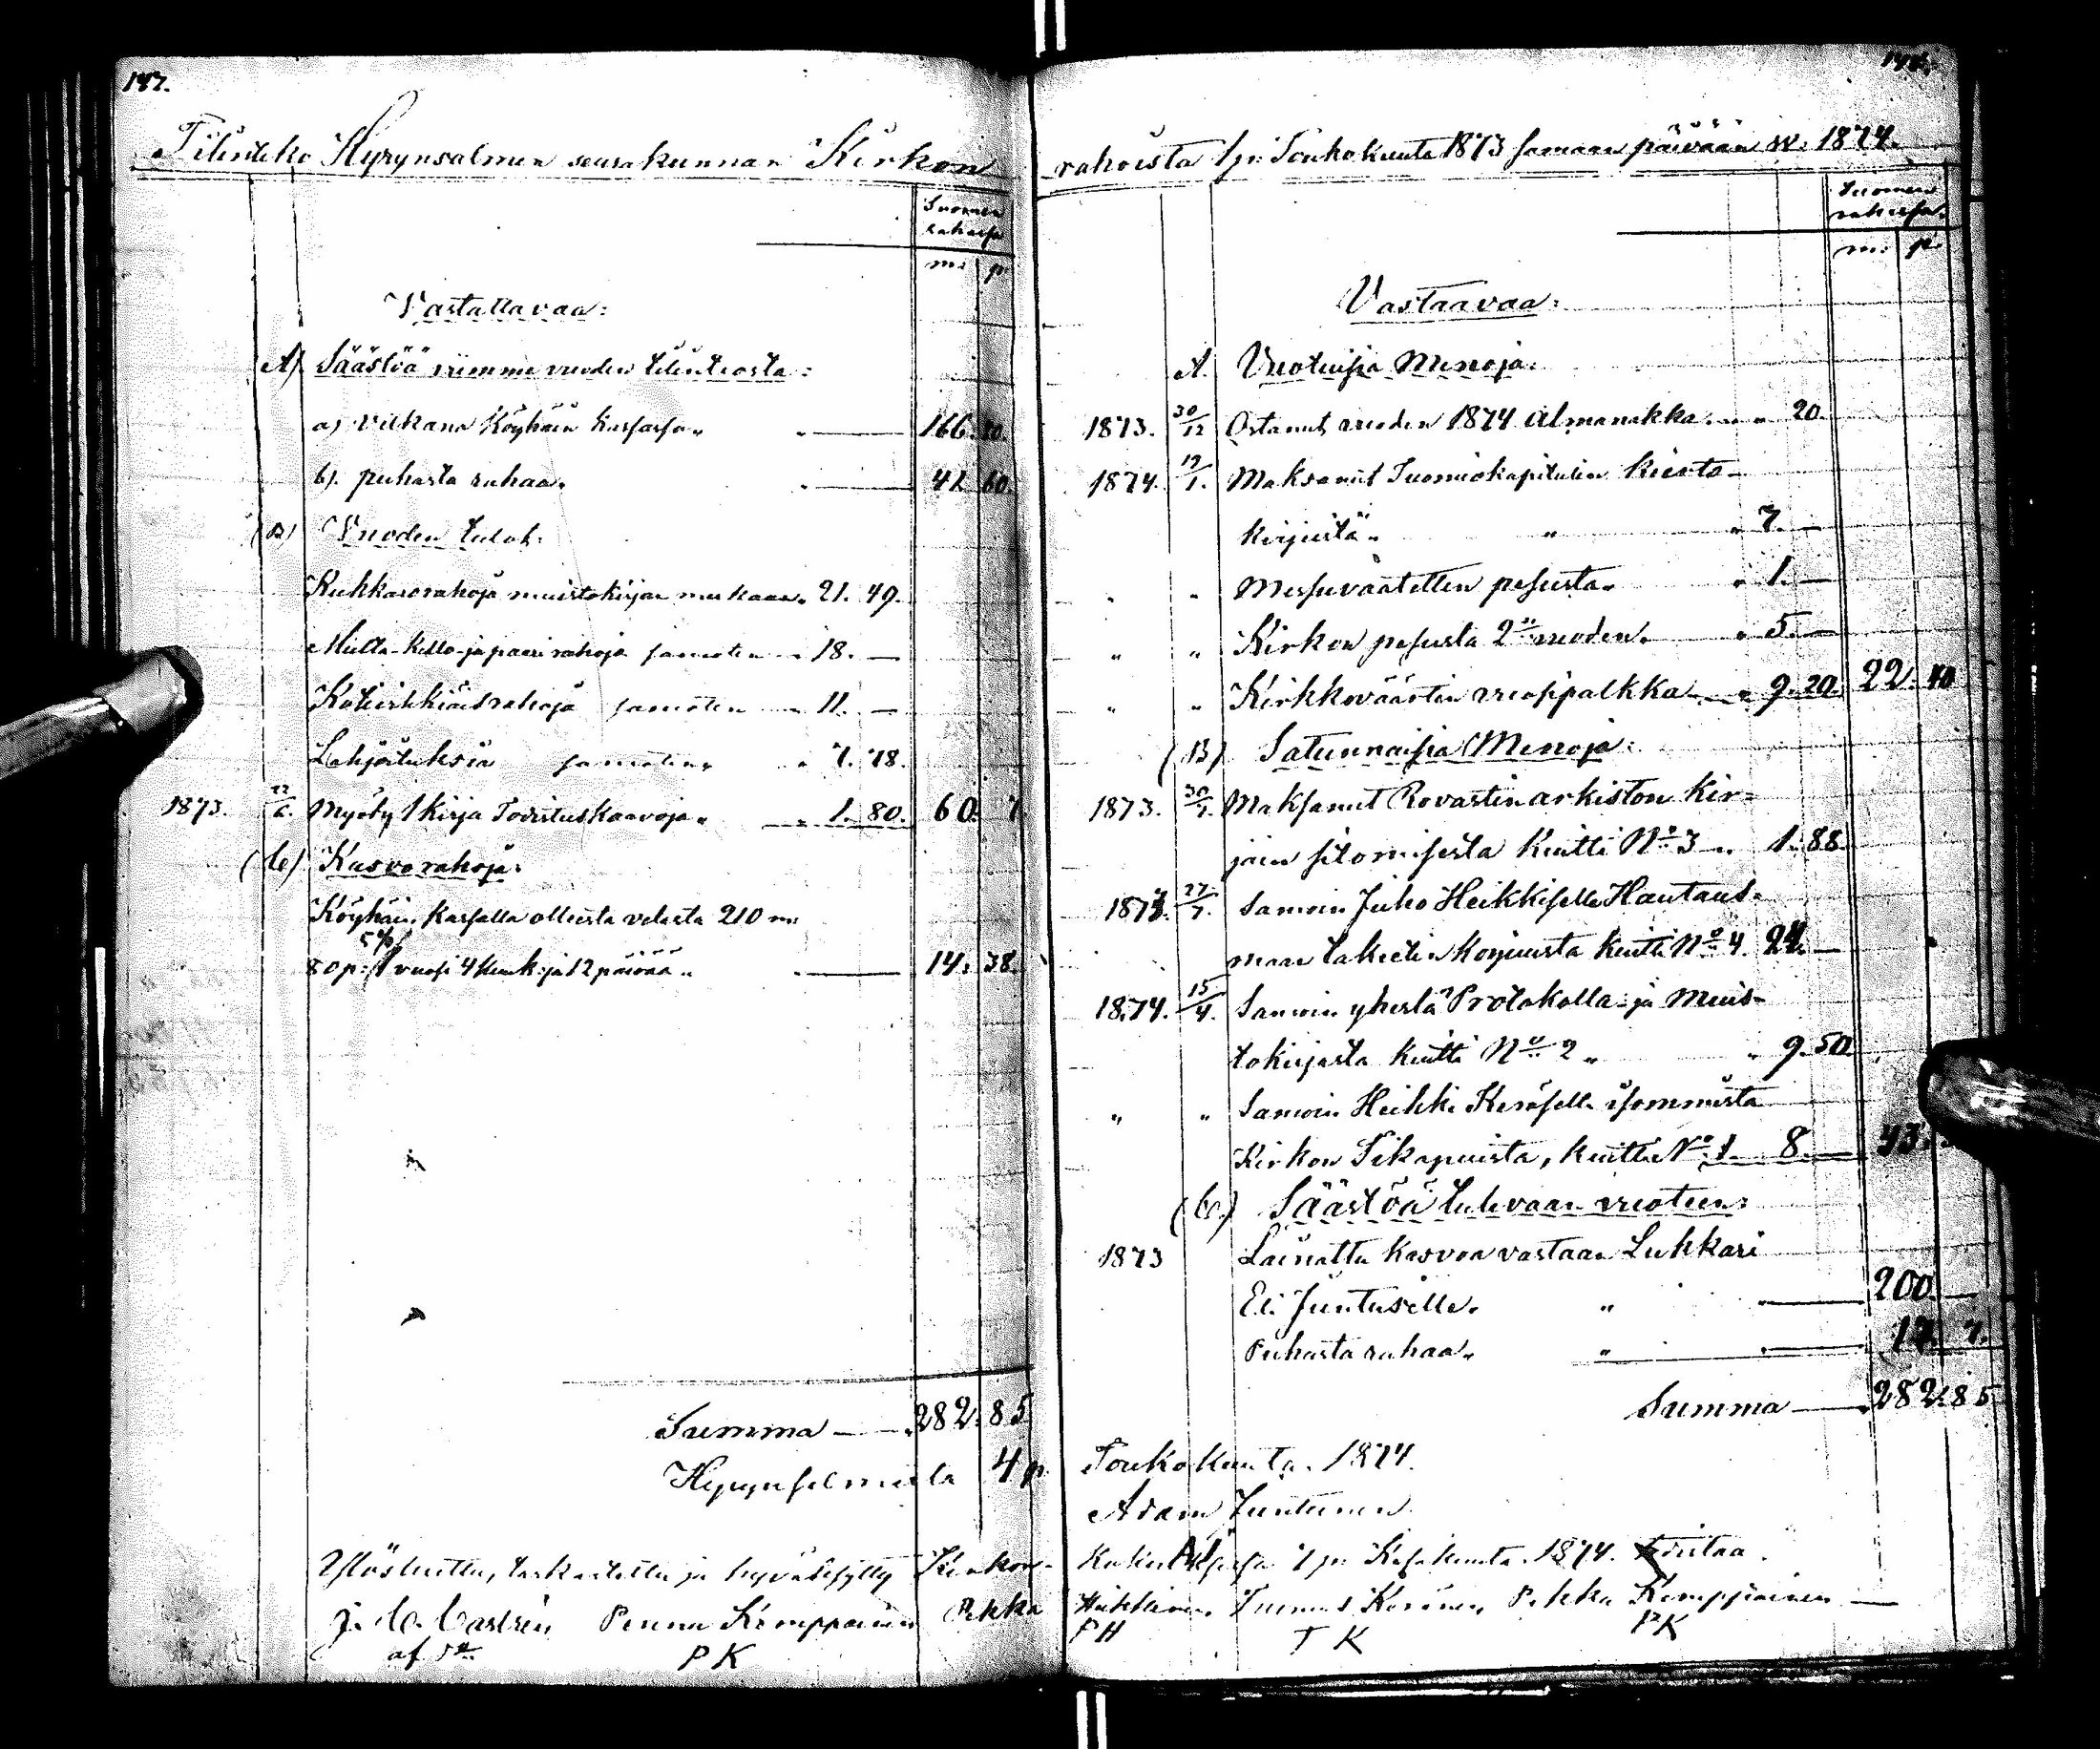 147.
Tilinteko Hyrynsalmen seurakunnan Kirkon
Suomen
rahassa
m: p:
Vastattavaa:
A) Säästöä viimme vuoden tilinteosta:
a) velkana Köyhäin kassassa „ „ 166. 80.
b). puhasta rahaa. „ 41 60.
(B) Vuoden tulot:
Kukkarorahoja muistokirjan mukaan „ 21. 49.
Multa- kello- ja paari rahoja samoten „ 18. —
Kotirikkiäisrahoja samoten „ 11. —
Lahjoituksia samoten „ „ 7. 78.
1873. 22/6. Myöty 1 kirja Todistuskaavoja „ „ 1. 80. 60. 7.
(C) Kasvorahoja:
Köyhäin Kassalla olleista velasta 210 m:
5%
80 p: 1 vuosi 4 kuuk: ja 12 päivää „ 14. 38.
Summa — 282. 85
Hyrynsalmella 4 p:
Ylösluettu, tarkastettu ja hyväksytty Kirkon-
J. C. Castrén Penna Kemppainen Pekka
P K
rahoista 1 p: Toukokuuta 1873 samaan päivään v: 1874.
Suomen
rahassa.
m: p:
Vastaavaa:
A. Vuotuisia Menoja:
1873. 30/12 Ostanut vuoden 1874 Almanakka „ „ 20.
1874. 19/1. Maksanut Tuomiokapitulin kierto-
kirjeistä „ „ „ 7. —
„ „ Messuvaatetten pesusta „ „ 1. —
„ „ Kirkon pesusta 2n vuoden. „ 5. —
„ „ Kirkkoväärtin vuosipalkka „ 9. 20. 22. 40
(B) Satunnaisia Menoja:
1873. 30/7. Maksanut Rovastin arkiston Kir-
jain sitomisesta kuitti No 3 „ 1. 88.
1873. 27/7. Samoin Juho Heikkiselle Hautaus-
maan taketin korjuusta kuitti No 4. 24. —
1874. 15/4. Samoin yhestä Protokolla- ja Muis-
tokirjasta kuitti No 2 „ „ 9. 50.
„ „ Samoin Heikki Keräselle isommista
Kirkon Tikapuista, kuitti No 1. 8. — 43.
(C.) Säästöä tulevaan vuoteen:
1873 Lainattu kasvoa vastaan Lukkari
Eli Juntuselle. „ 200. —
Puhasta rahaa „ „ 17. 7.
Summa — 282. 85
Toukokuuta. 1874.
Adam Juntunen
7 p: Kesäkuuta. 1874. Todistaa
Heikkinen Tuomas Keränen Pekka Kemppainen —
P H T K P K